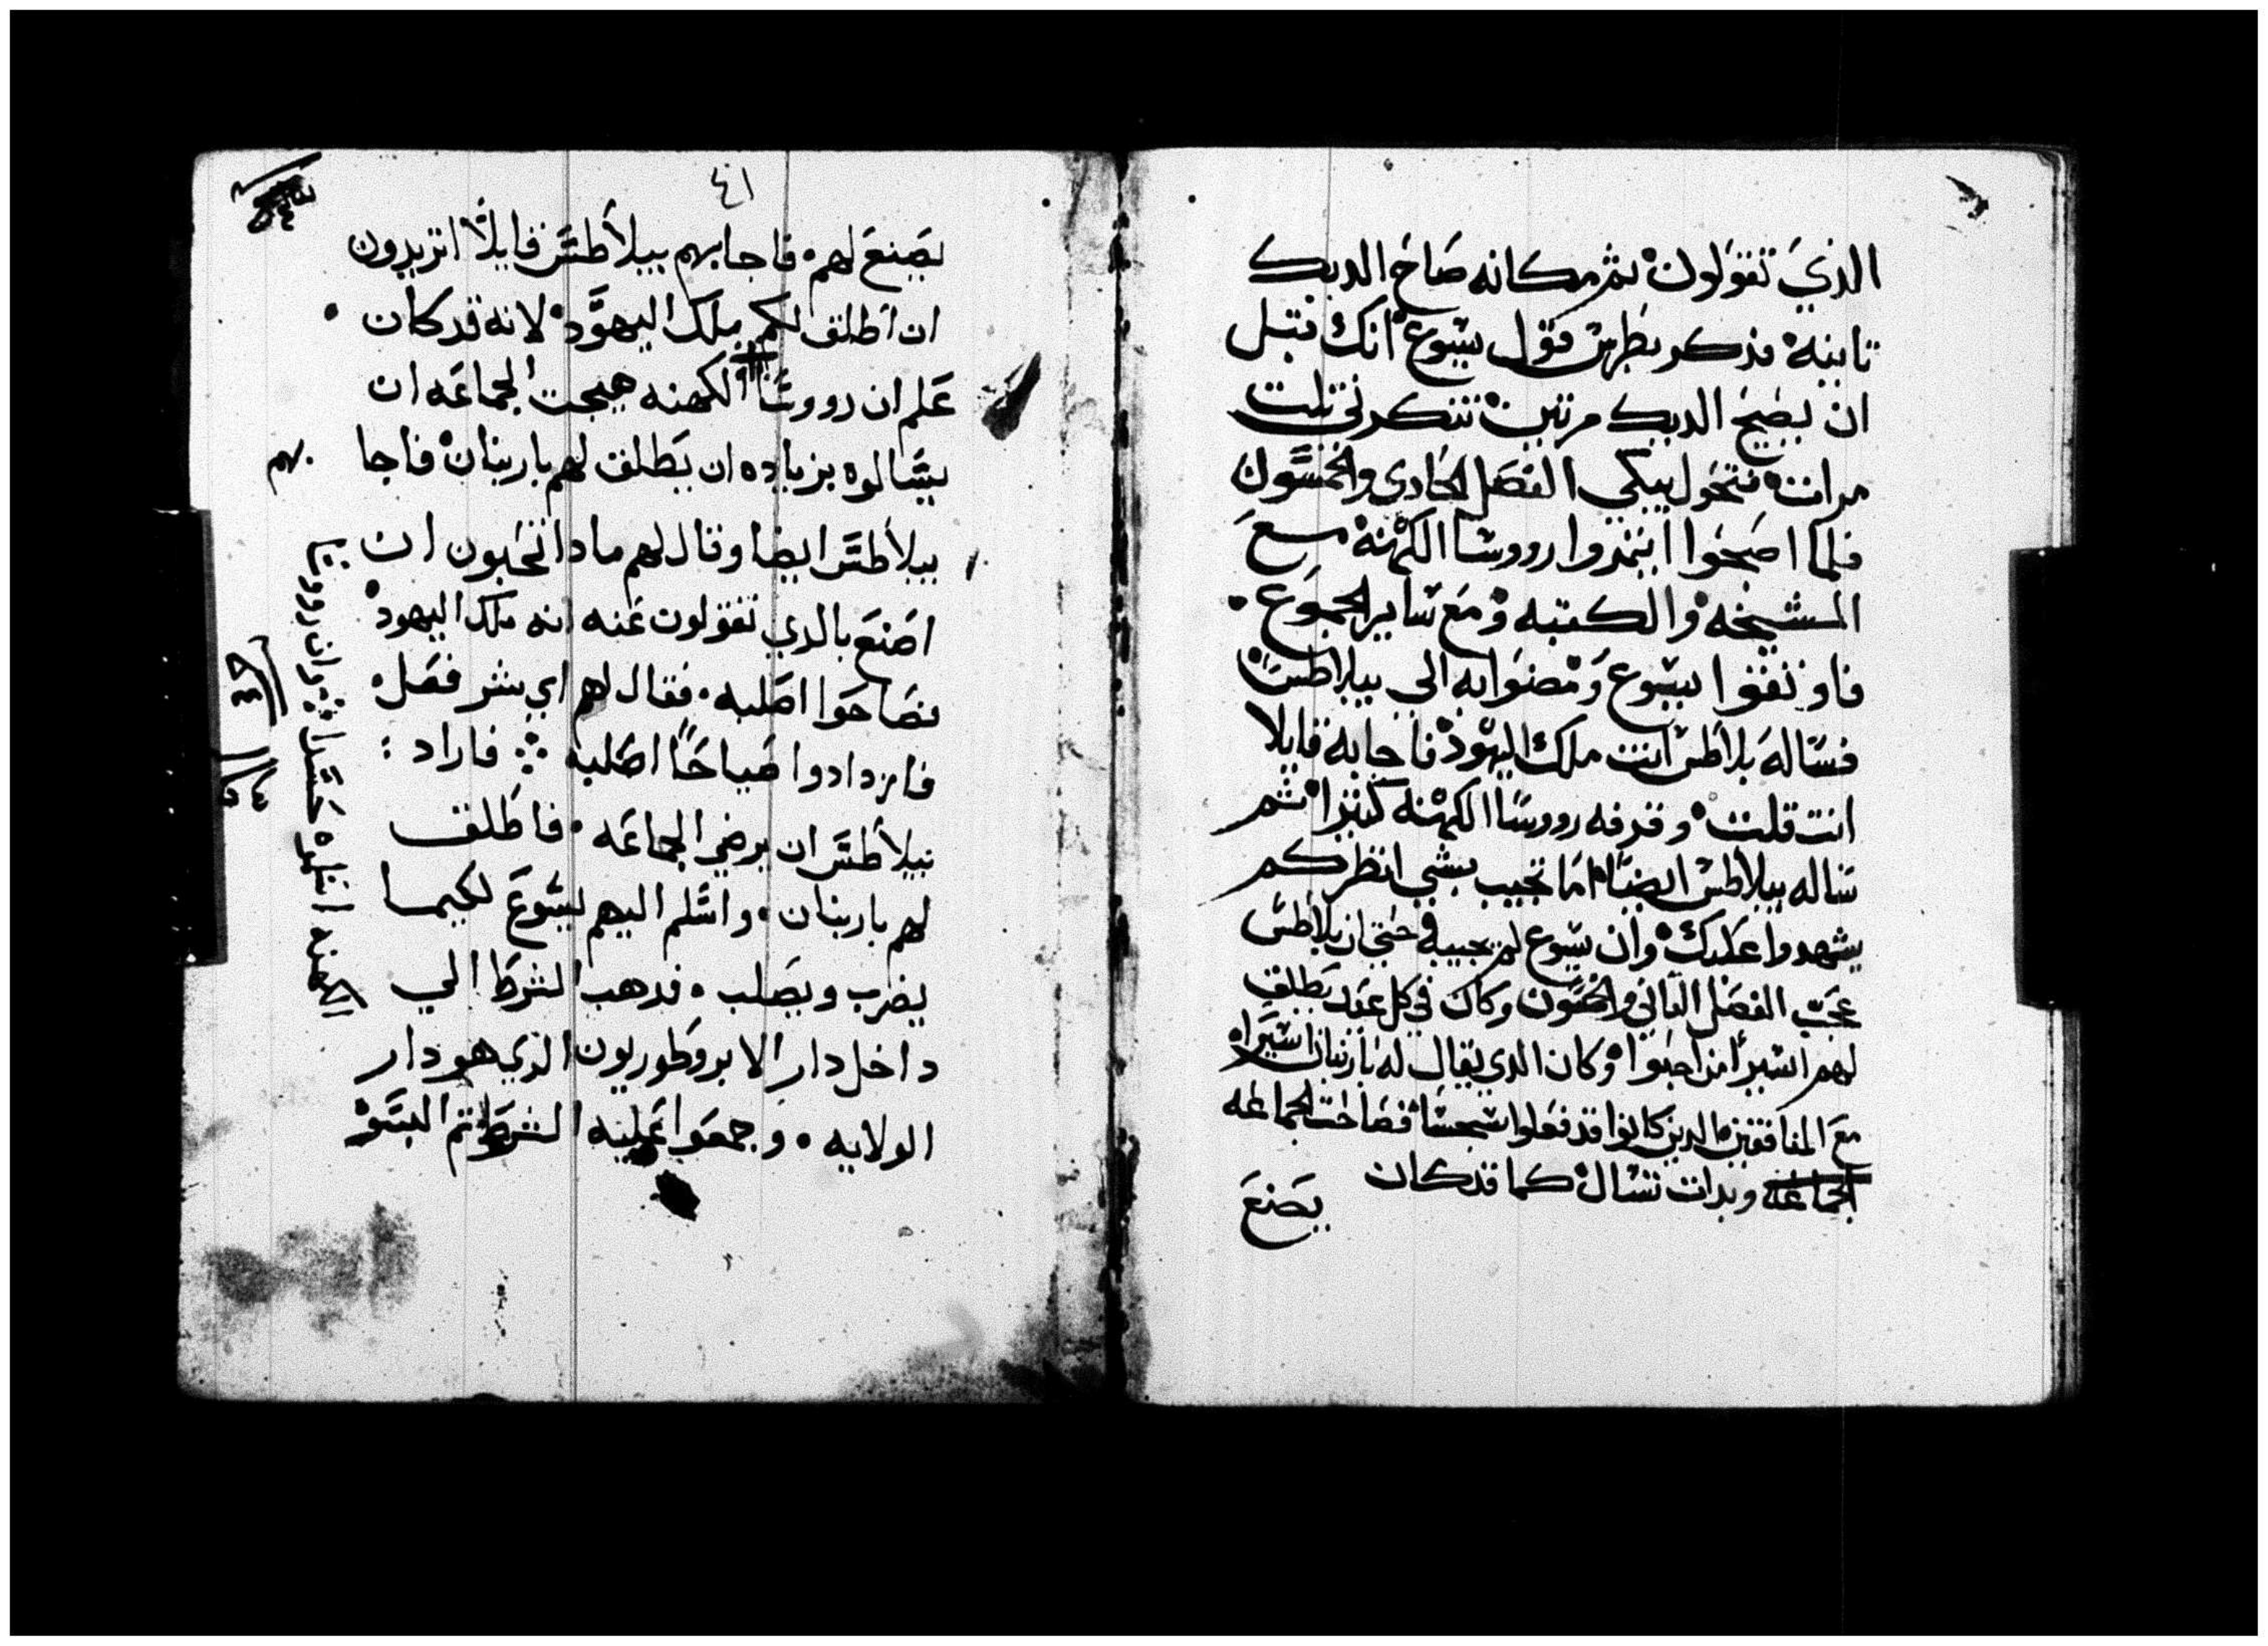 الذي تقولون ثم مكانه صاح الديك
تانيه فذكر بطرس قول يسوع انك قبل
ان يصيح الديك مرتين تنكرني تلت
مرات فتحول يبكي الفصل الحادي والخمسون
فلما اصبحوا ايتمروا رووسا الكهنه مع
المشيخه والكتبه ومع ساير الجموع
فاوثقوا يسوع ومضوا به الي بيلاطس
فساله بلاطس انت ملك اليهود فاجابه قايلا
انت قلت وقرفه رووسا الكهنه كثيرا ثم
ساله بيلاطس ايضا اما تجيب بشي انظر كم
يشهدوا عليك وان يسوع لم يجيبه حتي ان بلاطس
عجب الفصل الثاني والخمسون وكان في كل عيد يطلق
لهم اسيرا من احبوا وكان الذي يقال له باربنان اسيرا
مع المنافقين الدين كانوا قد فعلوا سجسا فصاحت الجماعه
الجماعه وبدات تسال كما قد كان
يصنع
٤١
يصنع لهم فاجابهم بيلاطس قايلا اتريدون
ان اطلق لكم ملك اليهود لانه قد كان
علم ان رووسا الكهنه هيجت الجماعه ان
يسالوه بزياده ان يطلق لهم باربنان فاجا
بهم
بيلاطس ايضا وقال لهم مادا تحبون ان
اصنع بالدي تقولون عنه انه ملك اليهود
فصاحوا اصلبه فقال لهم اي شر فعل
فازدادوا صياحا اصلبه فاراد
بيلاطس ان يرضي الجماعه فاطلق
لهم باربنان واسلم اليهم يسوع لكيما
يضرب ويصلب فدهب الشرط الي
داخل دار الابروطوريون الذي هو دار
الولايه وجمعوا عليه الشرط تم البسوه
وان رووسا
الكهنه اسلموه حسدا